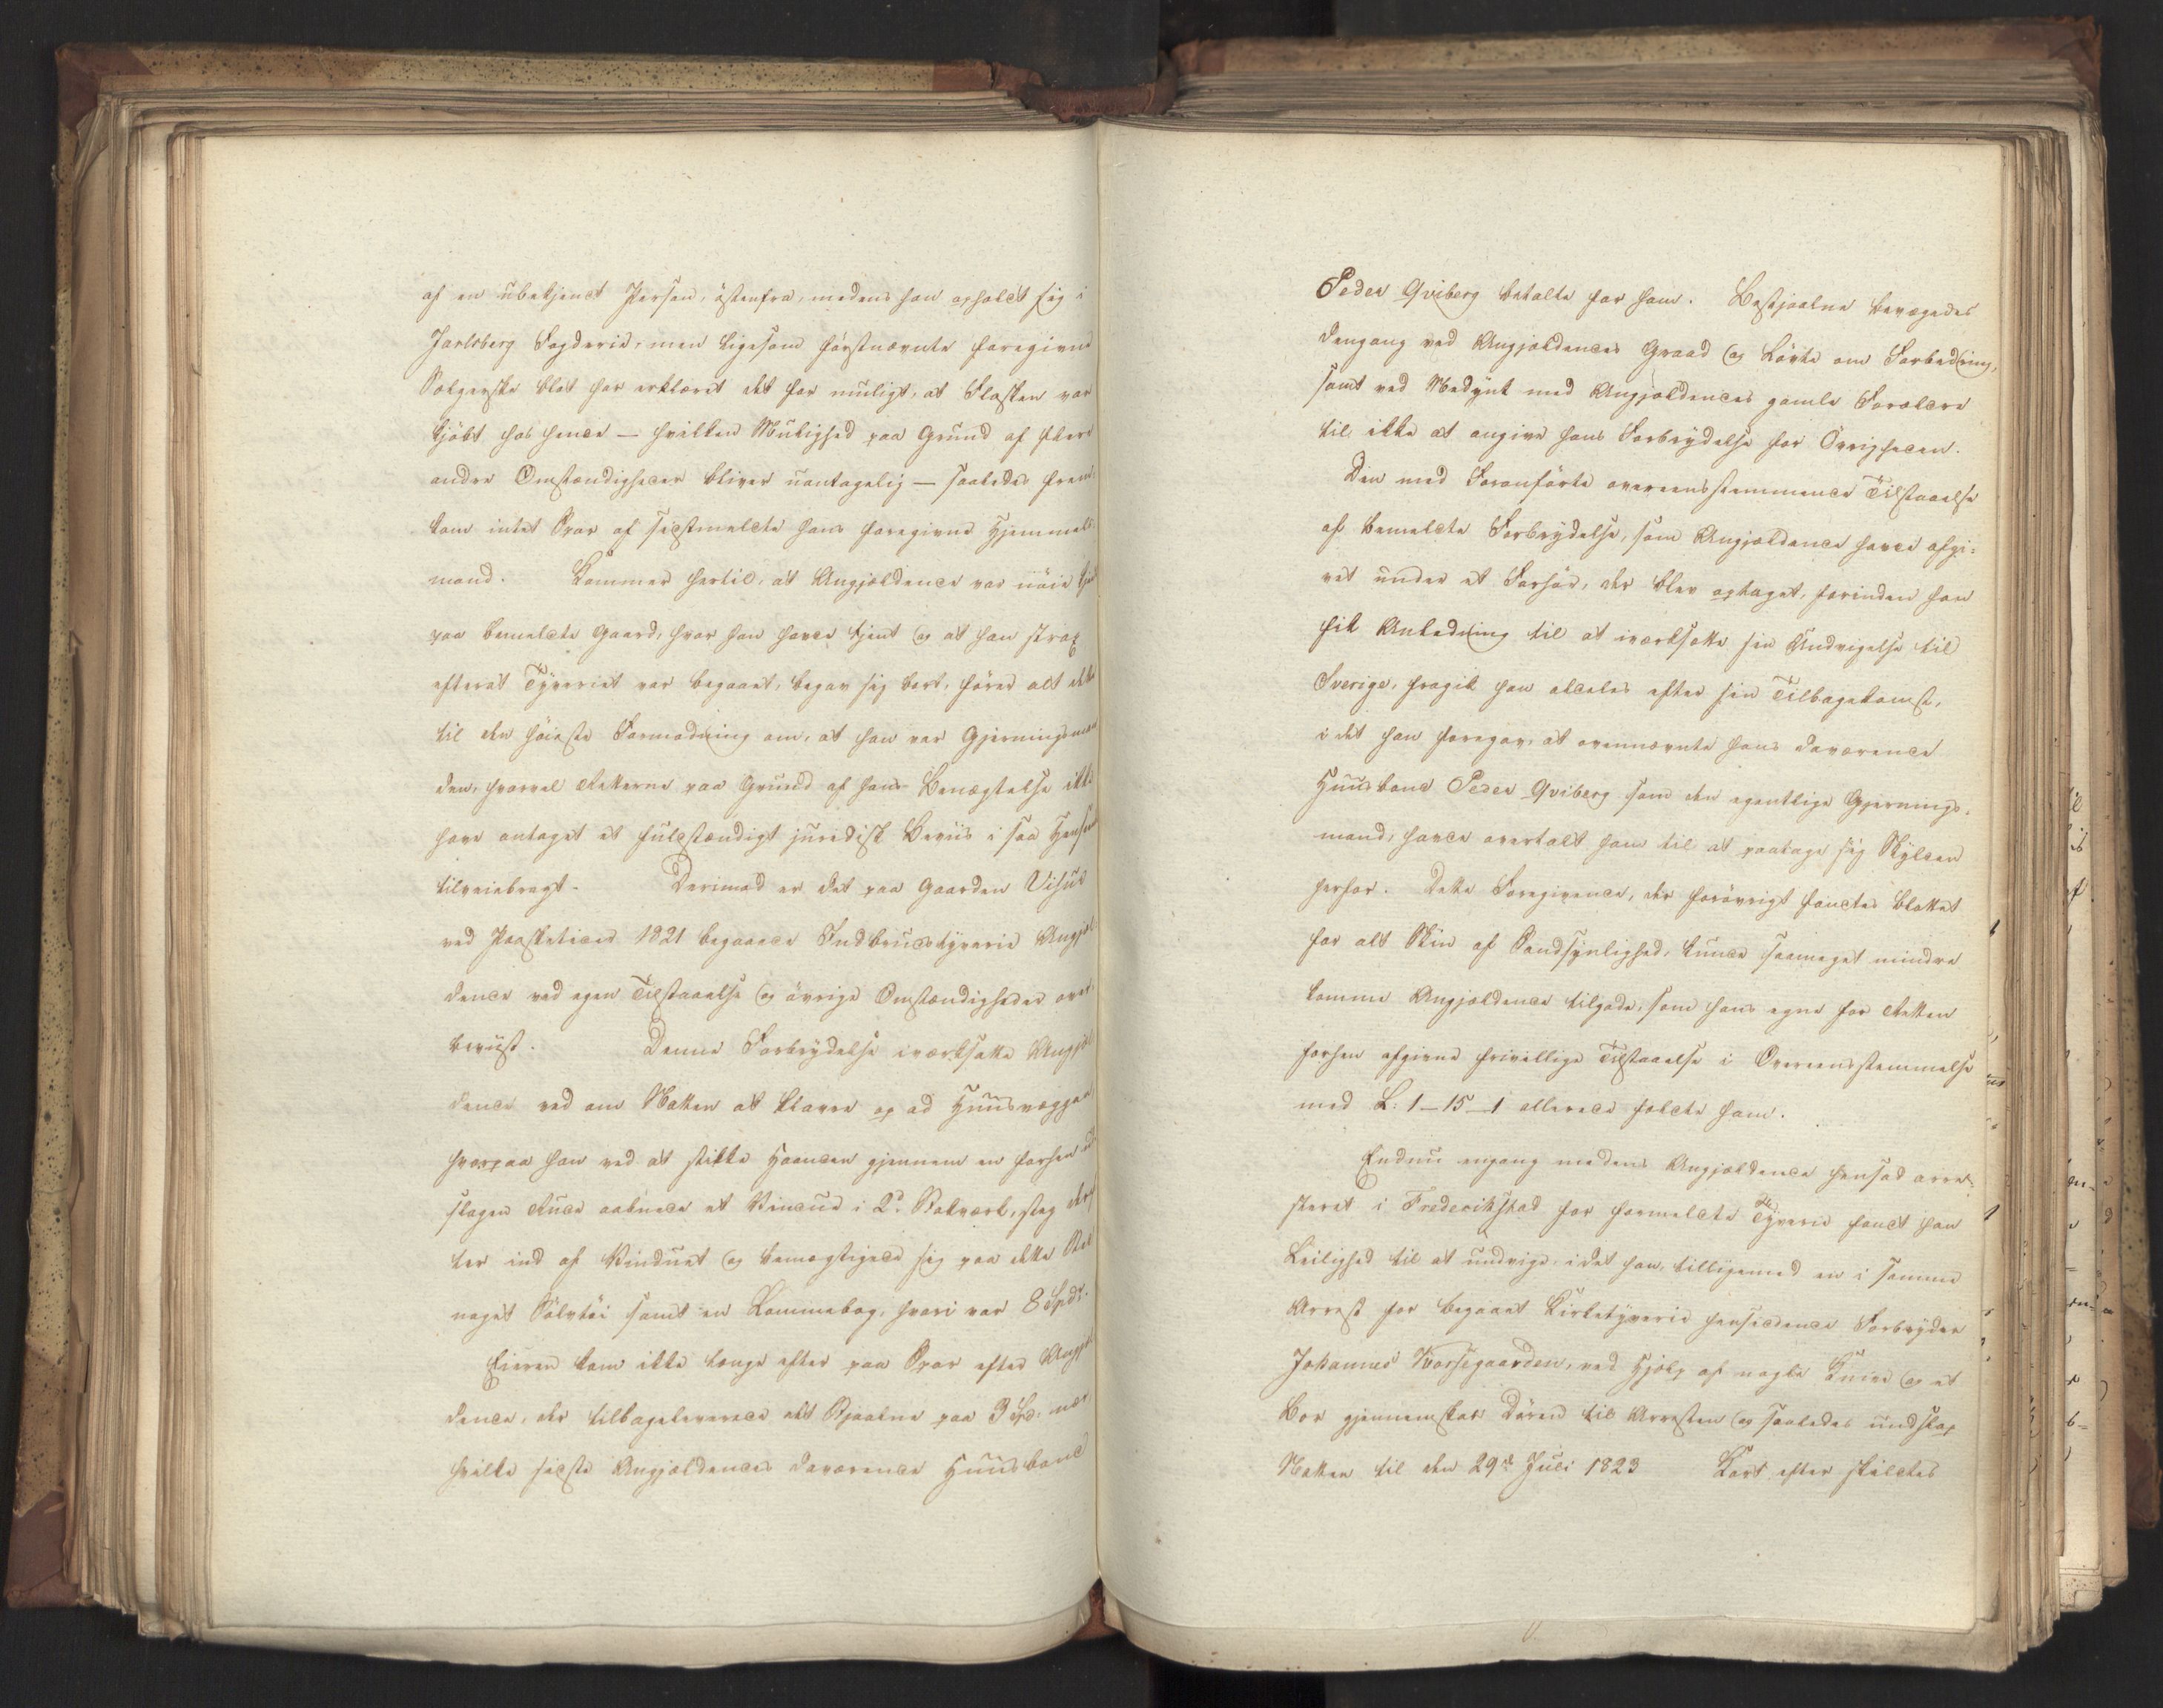 af en ubekjendt Person, östenfra, medens han opholdt sig i
Jarlsberg Fogderie, men ligesom förstnævnte foregivne
Sælgerske blot har erklæret det for muligt, at Flasken var
kjöbt hos hende — hvilken Mulighed paa Grund af flere
andre Omstændigheder bliver uantagelig — saaledes frem¬
kom intet Spor af sidstmeldte hans foregivne Hjemmels¬
mand. Kommer hertil, at Angjeldende var nöie kjendt
paa bemeldte Gaard, hvor han havde tjent og at han strax
efterat Tyveriet var begaaet, begav sig bort, förer alt dette
til den höieste Formodning om, at han var Gjerningsman
den, hvorvel Retterne paa Grund af hans Benægtelse ikke
have antaget et fuldstændigt juridisk Beviis i saa Henseende
tilveiebragt. Derimod er det paa Gaarden Visur
ved Paasketider 1821 begaaede Indbrudstyverie Angjel¬
dende ved egen Tilstaaelse og övrige Omstændigheder over¬
beviist. Denne Forbrydelse iværksatte Angjel¬
dende ved om Natten at klavre op ad Huusvæggen
hvorpaa han ved at stikke Haanden gjennem en forhen ud¬
slagen Rude aabnede et Vindue i 2d Stokværk, steg deref
ter ind af Vinduet og bemægtigede sig paa dette Sted
noget Sölvtöi samt en Lommebog, hvori var 8 Spdr.
Eieren kom ikke længe efter paa Spor efter Angjel
dende, der tilbageleverede det Stjaalne paa 3 Spd. nær
hvilke sidste Angjeldendes daværende Huusbond
Peder Qviberg betalte for ham. Bestjaalne bevægedes
dengang ved Angjeldendes Graad og Löfte om Forbedring,
samt ved Medynk med Angjeldendes gamle Forældre
til ikke at angive hans Forbrydelse for Övrigheden.
Den med Foranförte overeensstemmende Tilstaaelse
af bemeldte Forbrydelse, som Angjeldende havde afgi¬
vet under et Forhör, der blev optaget, forinden han
fik Anledning til at iværksætte sin Undvigelse til
Sverige, fragik han aldeles efter sin Tilbagekomst,
i det han foregav, at ovennævnte hans daværende
Huusbond Peder Qviberg som den egentlige Gjernings¬
mand, havde overtalt ham til at paatage sig Skylden
herfor. Dette Foregivende, der forövrigt fandtes blottet
for alt Skin af Sandsynlighed, kunde saameget mindre
komme Angjeldende tilgode, som hans egne for Retten
forhen afgivne frivillige Tilstaaelse i Overeensstemmelse
med L: 1–15–1 allerede fældte ham.
Endnu engang medens Angjeldende hensad arre¬
steret i Frederikstad for formeldte Tyverie fandt han
Leilighed til at undvige, idet han, tilligemed en i samme
Arrest for begaaet Kirketyverie hensiddende Forbryder
Johannes Korsegaarden, ved Hjelp af nogle Knive og et
Bor gjennemskar Dören til Arresten og saaledes undslap
Natten til den 29de Juli 1823 Kort efter skildtes